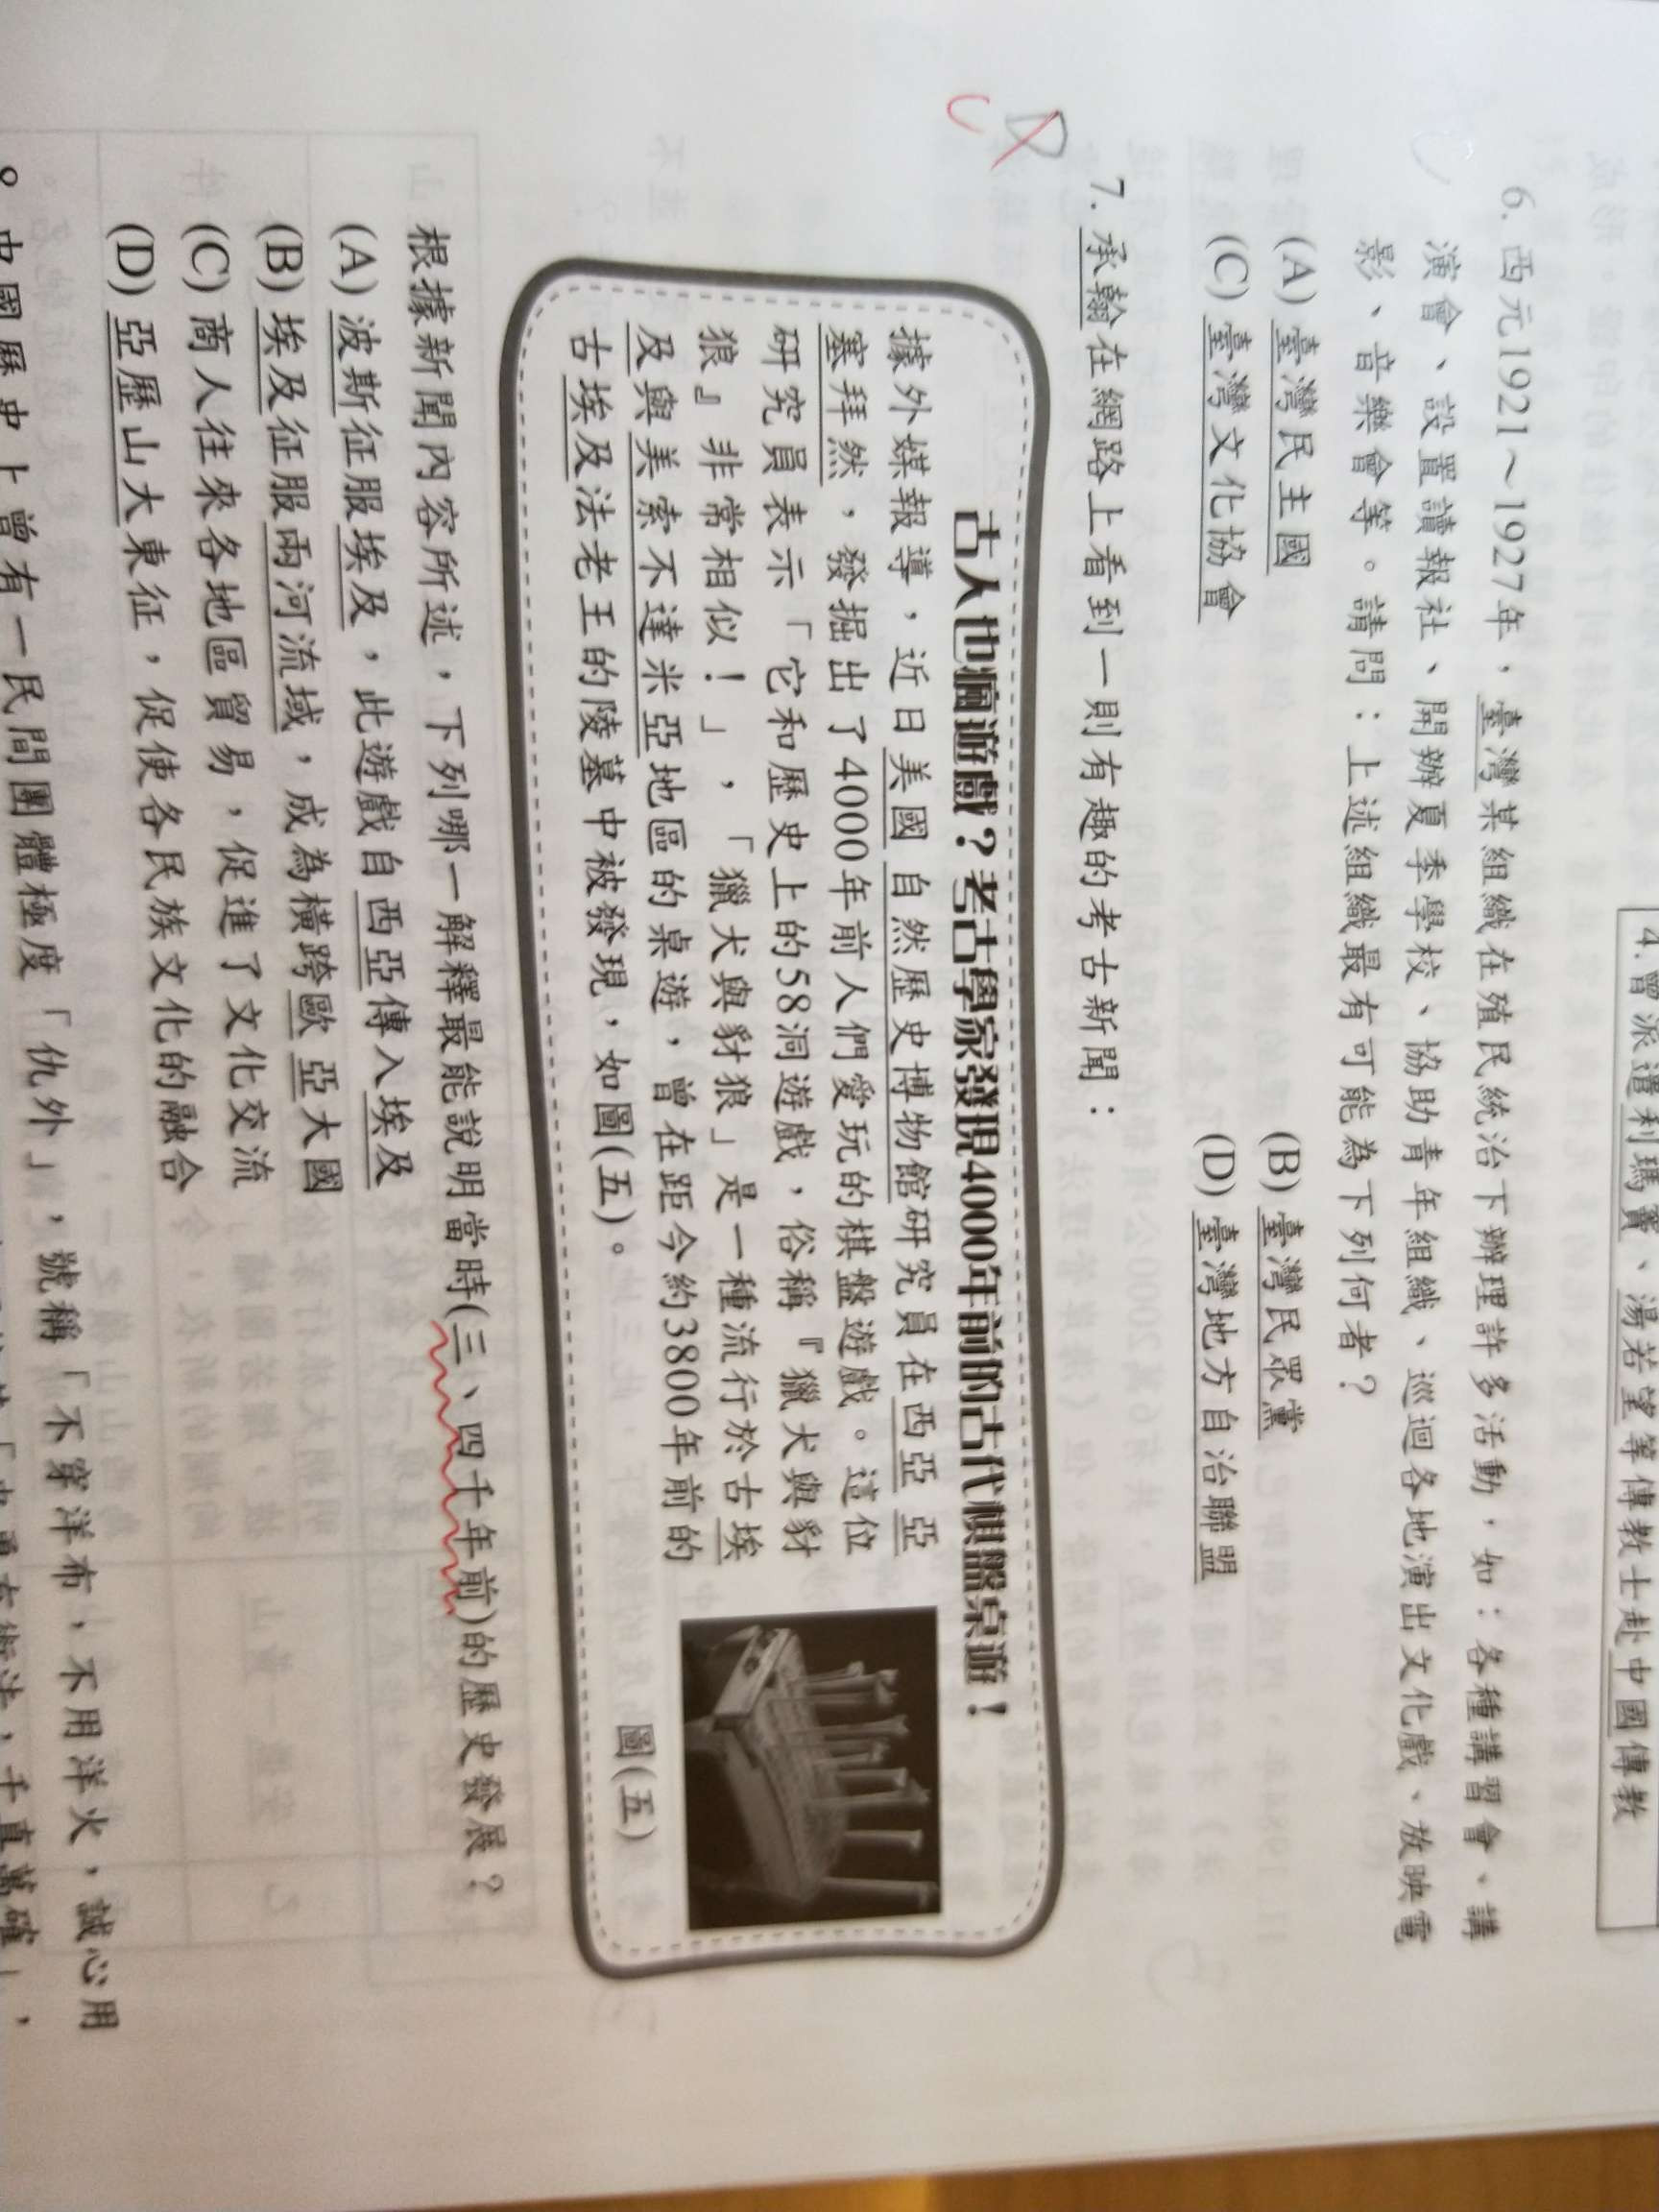 4. 曾派遣利瑪竇、湯若望等傳教士赴中國傳教
6. 西元1921～1927年，臺灣某組織在殖民統治下辦理許多活動，如：各種講習會、講
演會、設置讀報社、開辦夏季學校、協助青年組織、巡迴各地演出文化戲、放映電
影、音樂會等。請問：上述組織最有可能為下列何者？
(A) 臺灣民主國 (B) 臺灣民眾黨
(C) 臺灣文化協會 (D) 臺灣地方自治聯盟
D
C
7. 承翰在網路上看到一則有趣的考古新聞：
古人也瘋遊戲？考古學家發現4000年前的古代棋盤桌遊！
據外媒報導，近日美國自然歷史博物館研究員在西亞亞
塞拜然，發掘出了4000年前人們愛玩的棋盤遊戲。這位
研究員表示「它和歷史上的58洞遊戲，俗稱『獵犬與豺
狼』非常相似！」，「獵犬與豺狼」是一種流行於古埃
及與美索不達米亞地區的桌遊，曾在距今約3800年前的
古埃及法老王的陵墓中被發現，如圖(五)。
圖(五)
根據新聞內容所述，下列哪一解釋最能說明當時(三、四千年前)的歷史發展？
(A) 波斯征服埃及，此遊戲自西亞傳入埃及
(B) 埃及征服兩河流域，成為橫跨歐亞大國
(C) 商人往來各地區貿易，促進了文化交流
(D) 亞歷山大東征，促使各民族文化的融合
中國歷史上曾有一民間團體極度「仇外」，號稱「不穿洋布，不用洋火，誠心用